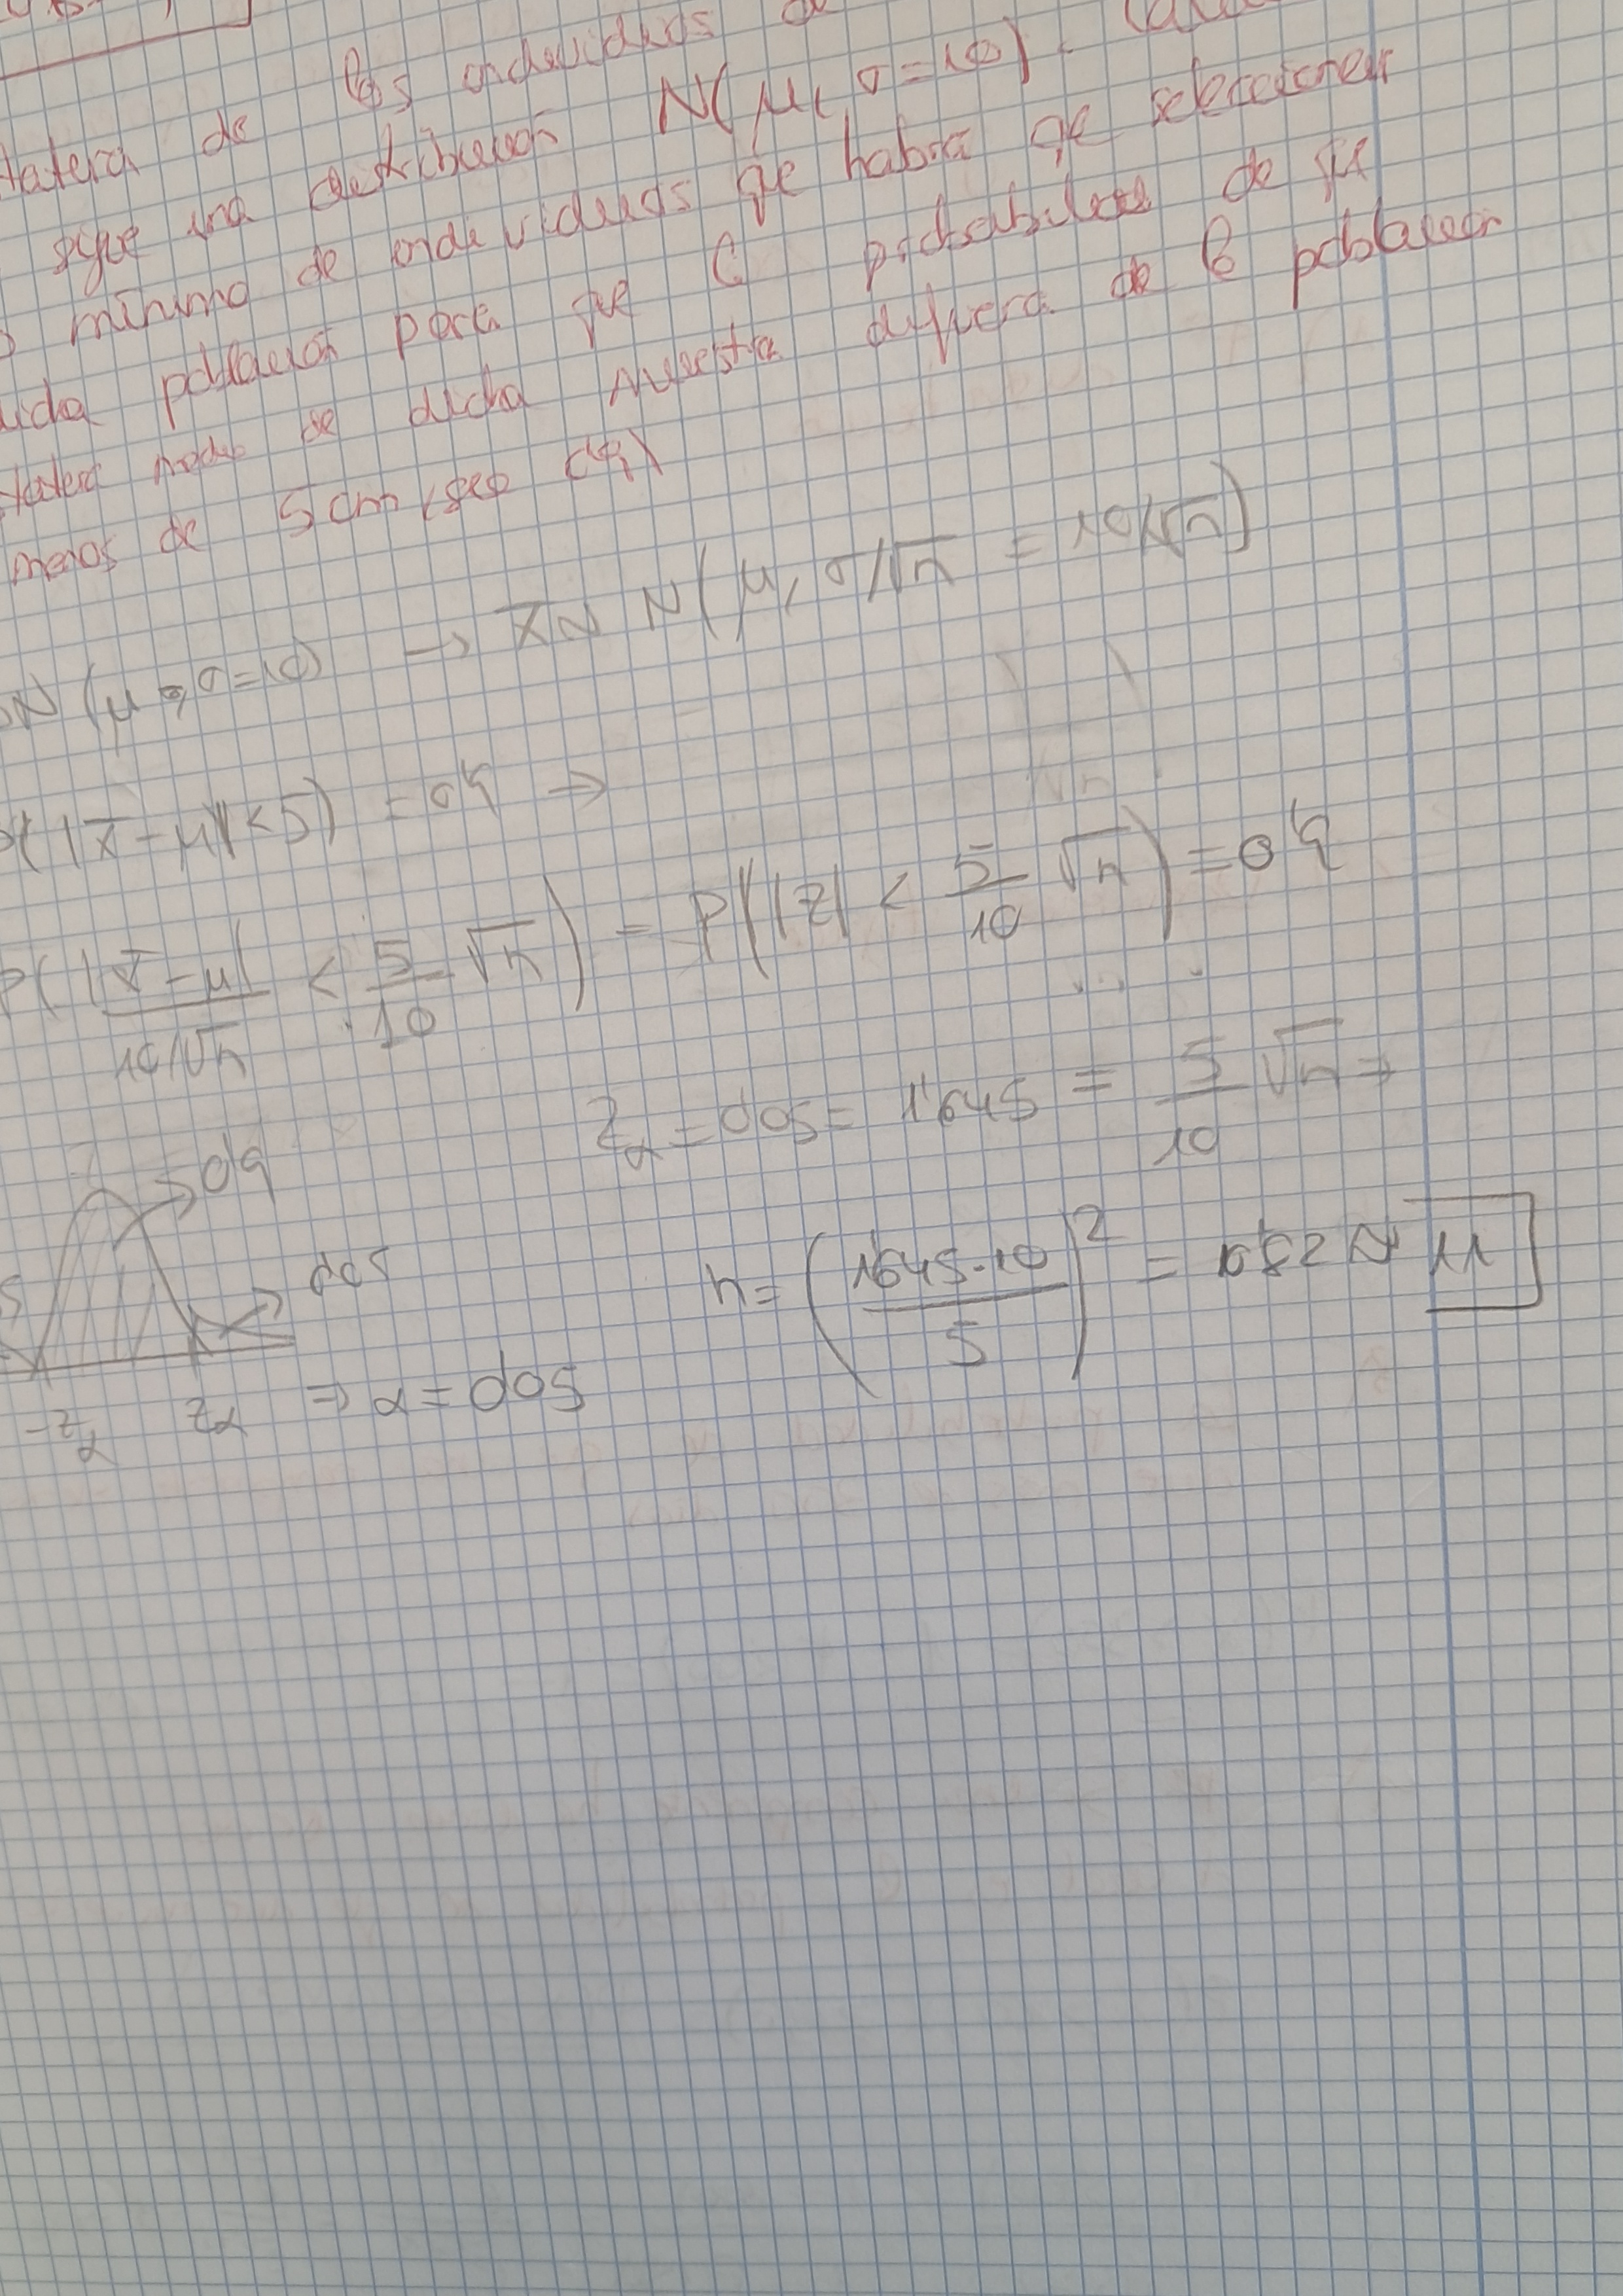 tatura de los individuos de
sigue una distribución N(μ, σ=10).
mínimo de individuos que habrá qe seleccionar
dicha población para que la probabilidad de que
media de dicha muestra difiera de la población
menos de 5cm sea 0'9)
N(μ, σ=10) → X̄ ~ N(μ, σ/√n = 10/√n)
P(|X̄-μ|<5) = 0'9 →
P(|X̄-μ|/(10/√n) < 5/10 √n) = P(|Z| < 5/10 √n) = 0'9
Zα = 0'05 = 1'645 = 5/10 √n ⇒
→ 0'9
→ 0'05
n = (1'645·10/5)² = 10'82 ≈ 11
-Zα Zα ⇒ α = 0'05